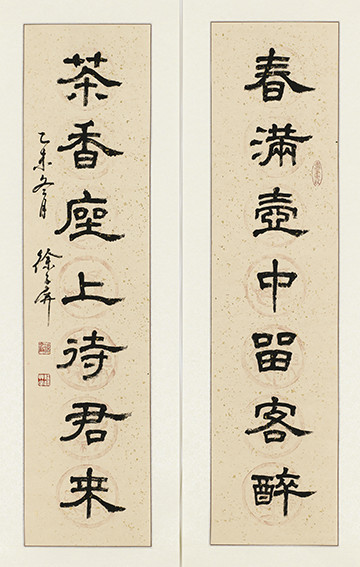 春满壶中留客醉
茶香座上待君来
乙未冬月